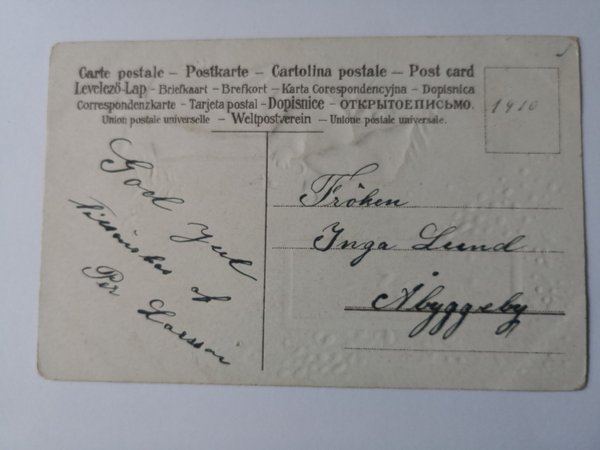 Carte postale – Postkarte – Cartolina postale – Post card
Levelező-Lap – Briefkaart – Brefkort – Karta Corespondencyjna – Dopisnica
Correspondenzkarte – Tarjeta postal – Dopisnice – ОТКРЫТОЕ ПИСЬМО.
Union postale universelle – Weltpostverein – Unione postale universale.
1910
God Jul
Tillönskas af
Per Larsson
Fröken
Inga Lund
Åbyggeby